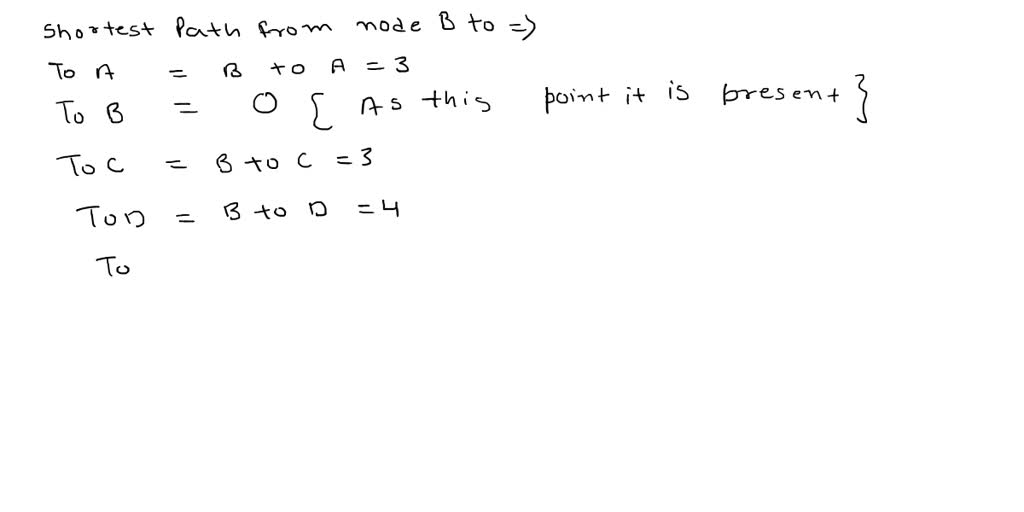 Shortest Path from node B to =>
To A = B to A = 3
To B = 0 { As this point it is present }
To C = B to C = 3
To D = B to D = 4
To